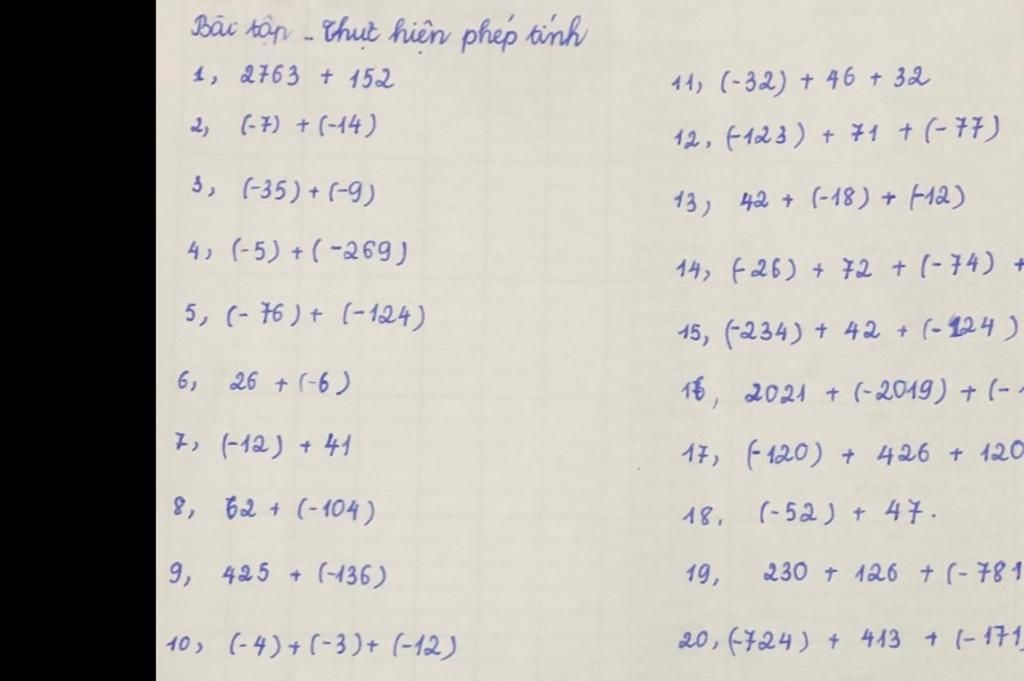 Bài tập - Thực hiện phép tính
1, 2763 + 152
2, (-7) + (-14)
3, (-35) + (-9)
4, (-5) + (-269)
5, (-76) + (-124)
6, 26 + (-6)
7, (-12) + 41
8, 62 + (-104)
9, 425 + (-136)
10, (-4) + (-3) + (-12)
11, (-32) + 46 + 32
12, (-123) + 71 + (-77)
13, 42 + (-18) + (-12)
14, (-26) + 72 + (-74) +
15, (-234) + 42 + (-124)
16, 2021 + (-2019) + (-
17, (-120) + 426 + 120
18, (-52) + 47.
19, 230 + 126 + (-781
20, (-724) + 413 + (-171)